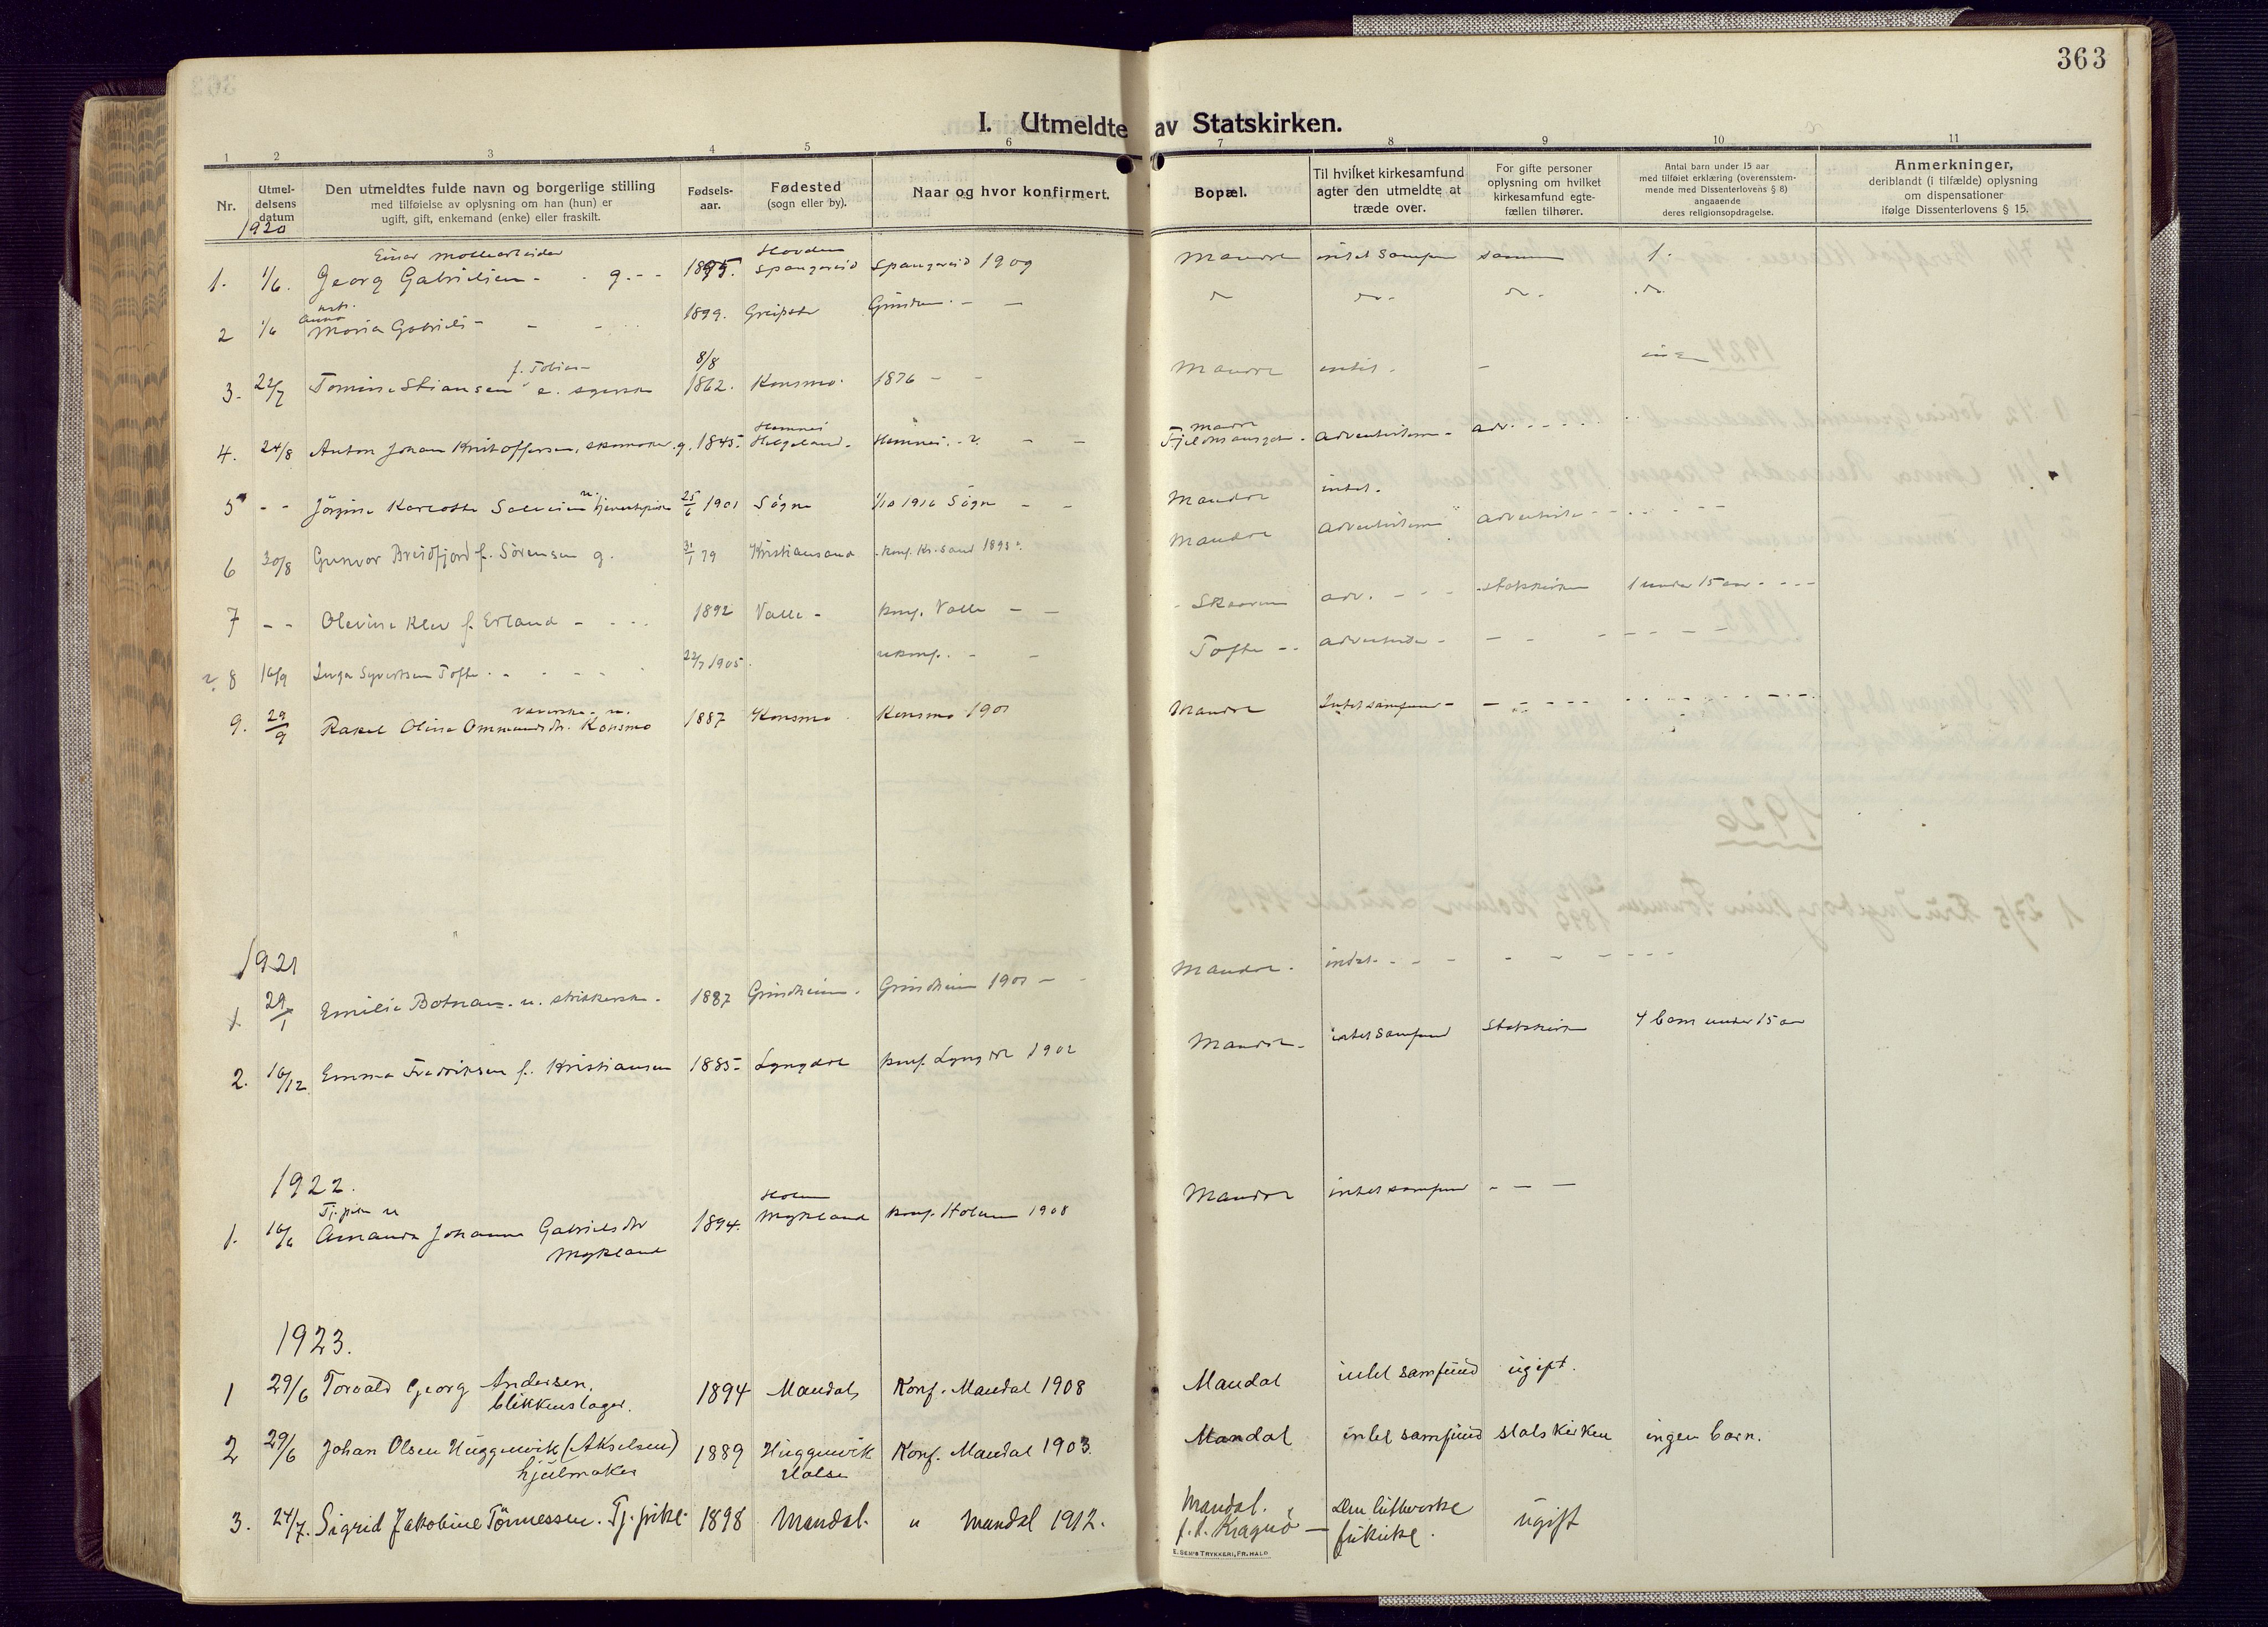 363
I. Utmeldte av Statskirken.
1 2 3 4 5 6 7 8 9 10 11
Nr.
Utmel-
delsens
datum
Den utmeldtes fulde navn og borgerlige stilling
med tilføielse av oplysning om han (hun) er
ugift, gift, enkemand (enke) eller fraskilt.
Fødsels-
aar.
Fødested
(sogn eller by).
Naar og hvor konfirmert.
Bopæl.
Til hvilket kirkesamfund
agter den utmeldte at
træde over.
For gifte personer
oplysning om hvilket
kirkesamfund egte-
fællen tilhører.
Antal barn under 15 aar
med tilføiet erklæring (overensstem-
mende med Dissenterlovens § 8)
angaaende
deres religionsopdragelse.
Anmerkninger,
deriblandt (i tilfælde) oplysning
om dispensationer
ifølge Dissenterlovens § 15.
1920
Einar
1. 1/6. Georg Gabrielsen - g. - - 1895. Spangereid Spangereid 1909 Mandal intet samfun samme 1.
Anna
2 1/6 Maria Gabriels - - 1899. Greipstad - -
f. Tobias 8/8
3. 22/7 Tomine Stiansen e. 1862. Konsmo. 1876 - - Mandal intet. - ingen
Hemnes Mandal
4. 24/8 Anton Johan Kristoffersen, skomaker. g. 1845. Helgeland. Hemnes. - - Adventisterne - adv.
5 - - Jørgine Karlotte Salvesen u. tjenestepike 25/6 1901 Søgne 1/10 1916 Søgne - - Mandal intet.
6 30/8 Gunvor Breidfjord f. Sørensen g. 31/1 79 Kristiansand konf. Kr.sand 1893 Mandal Adventisterne Adventist
7 - - Olevine Klev f. Erland - 1892 Valle - konf. Valle - - adv. - - - statskirken 1 under 15 aar
8 16/9 Inga Syvertsen Tofte. - - 22/7 1905. ukonf. - - Tofte - - - -
9. 29/9 Rakel Oline Ommundsdtr. Konsmo 1887 Konsmo Konsmo 1901 Mandal Intet samfund -
1921
1 29/1 Emilie Botnan. u. strikkerske. 1887 Grindheim. Grindheim 1901 - Mandal. intet.
2. 16/12 Emma Fredriksen f. Kristiansen 1885 Lyngdal konf. Lyngdal 1902 Mandal. intet samfund Statskirken 4 barn under 15 aar
1922.
Tj. pike u Holum
1. 16/6 Amanda Johanne Gabrielsdtr 1894. Mykland konf. Holum 1908 Mandal intet samfund - - -
Mykland
1923.
1 29/6 Torvald Georg Andersen. 1894 Mandal Konf. Mandal 1908 Mandal intet samfund ugift.
blikkenslager.
2 29/6 Johan Olsen Huggenvik (Akselsen) 1889 Huggenvik Konf. Mandal 1903. Mandal intet samfund statskirken ingen barn.
hjulmaker Halse
3. 24/7. Sigrid Jakobine Tönnessen. Tj. pike 1898 Mandal. " Mandal 1912. Mandal. Den lutherske ugift
f. t. Kragerø - frikirke.
E. SEM'S TRYKKERI, FR.HALD